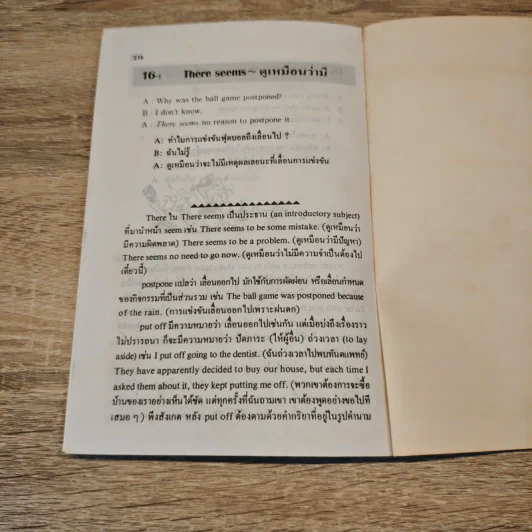 216
16-1 There seems ~ ดูเหมือนว่ามี
A : Why was the ball game postponed?
B : I don't know.
A : There seems no reason to postpone it.
A: ทำไมการแข่งขันฟุตบอลถึงเลื่อนไป ?
B: ฉันไม่รู้
A: ดูเหมือนว่าจะไม่มีเหตุผลเลยนะที่เลื่อนการแข่งขัน
There ใน There seems เป็นประธาน (an introductory subject)
ที่มานำหน้า seem เช่น There seems to be some mistake. (ดูเหมือนว่า
มีความผิดพลาด) There seems to be a problem. (ดูเหมือนว่ามีปัญหา)
There seems no need to go now. (ดูเหมือนว่าไม่มีความจำเป็นต้องไป
เดี๋ยวนี้)
postpone แปลว่า เลื่อนออกไป มักใช้กับการผัดผ่อน หรือเลื่อนกำหนด
ของกิจกรรมที่เป็นส่วนรวม เช่น The ball game was postponed because
of the rain. (การแข่งขันเลื่อนออกไปเพราะฝนตก)
put off มีความหมายว่า เลื่อนออกไปเช่นกัน แต่เมื่อบ่งถึงเรื่องราว
ไม่ปรารถนา ก็จะมีความหมายว่า ปัดภาระ (ให้ผู้อื่น) ถ่วงเวลา (to lay
aside) เช่น I put off going to the dentist. (ฉันถ่วงเวลาไปพบทันตแพทย์)
They have apparently decided to buy our house, but each time I
asked them about it, they kept putting me off. (พวกเขาต้องการจะซื้อ
บ้านของเราอย่างเห็นได้ชัด แต่ทุกครั้งที่ฉันถามเขา เขาต้องพูดอย่างขอไปที
เสมอ ๆ) พึงสังเกต หลัง put off ต้องตามด้วยคำกริยาที่อยู่ในรูปคำนาม